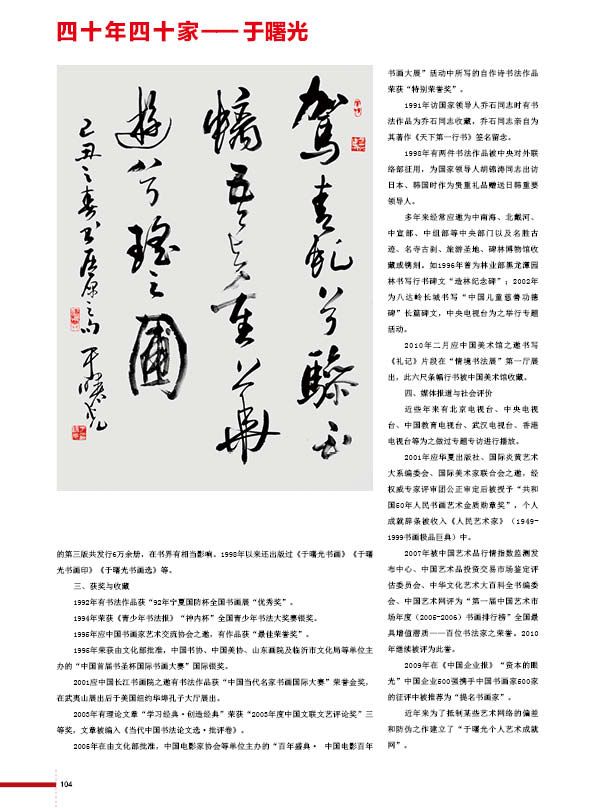 四十年四十家——于曙光
驾青虬兮骖白
螭吾与重华
游兮瑶之圃
己丑之春书屈原之句 于曙光
的第三版共发行6万余册，在书界有相当影响。1998年以来还出版过《于曙光书画》《于曙
光书画印》《于曙光书画选》等。
三、获奖与收藏
1992年有书法作品获“92年宁夏国防杯全国书画展“优秀奖”。
1994年荣获《青少年书法报》“神内杯”全国青少年书法大奖赛银奖。
1995年应中国书画家艺术交流协会之邀，有作品获“最佳荣誉奖”。
1996年荣获由文化部批准，中国书协、中国美协、山东画院及临沂市文化局等单位主
办的“中国首届书圣杯国际书画大赛”国际银奖。
2001应中国长江书画院之邀有书法作品获“中国当代名家书画国际大赛”荣誉金奖，
在武夷山展出后于美国纽约华埠孔子大厅展出。
2003年有理论文章“学习经典·创造经典”荣获“2003年度中国文联文艺评论奖”三
等奖，文章被编入《当代中国书法论文选·批评卷》。
2005年在由文化部批准，中国电影家协会等单位主办的“百年盛典· 中国电影百年
书画大展”活动中所写的自作诗书法作品
荣获“特别荣誉奖”。
1991年访国家领导人乔石同志时有书
法作品为乔石同志收藏，乔石同志亲自为
其著作《天下第一行书》签名留念。
1998年有两件书法作品被中央对外联
络部征用，为国家领导人胡锦涛同志出访
日本、韩国时作为贵重礼品赠送日韩重要
领导人。
多年来经常应邀为中南海、北戴河、
中宣部、中组部等中央部门以及名胜古
迹、名寺古刹、旅游圣地、碑林博物馆收
藏或镌刻。如1996年曾为林业部黑龙潭园
林书写行书碑文“造林纪念碑”；2002年
为八达岭长城书写“中国儿童慈善功德
碑”长篇碑文，中央电视台为之举行专题
活动。
2010年二月应中国美术馆之邀书写
《礼记》片段在“情境书法展”第一厅展
出，此六尺条幅行书被中国美术馆收藏。
四、媒体报道与社会评价
近些年来有北京电视台、中央电视
台、中国教育电视台、武汉电视台、香港
电视台等为之做过专题专访进行播放。
2001年应华夏出版社、国际炎黄艺术
大系编委会、国际美术家联合会之邀，经
权威专家评审团公正审定后被授予“共和
国50年人民书画艺术金质勋章奖”，个人
成就辞条被收入《人民艺术家》（1949-
1999书画极品巨典）中。
2007年被中国艺术品行情指数监测发
布中心、中国艺术品投资交易市场鉴定评
估委员会、中华文化艺术大百科全书编委
会、中国艺术网评为“第一届中国艺术市
场年度（2005-2006）书画排行榜”全国最
具增值潜质——百位书法家之荣誉。2010
年继续被评为此誉。
2009年在《中国企业报》“资本的眼
光”中国企业500强携手中国书画家500家
的征评中被推荐为“提名书画家”。
近年来为了抵制某些艺术网络的偏差
和防伪之作建立了“于曙光个人艺术成就
网”。
104